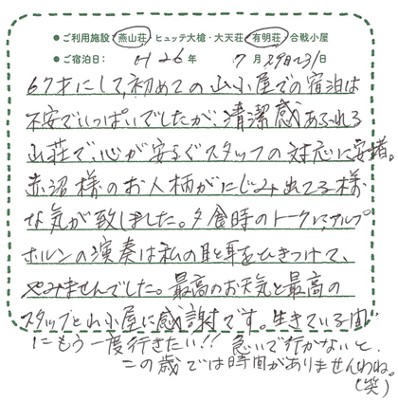 ●ご利用施設 燕山荘・ヒュッテ大槍・大天荘・有明荘・合戦小屋
●ご宿泊日: H26年 7月29日~31
67才にして、初めての山小屋での宿泊は
不安でいっぱいでしたが、清潔感あふれる
山荘で、心が安らぐスタッフの対応に安堵。
赤沼様のお人柄がにじみ出てる様
な気が致しました。夕食時のトークに、アルプ
ホルンの演奏は私の目と耳をひきつけて、
やみませんでした。最高のお天気と最高の
スタッフと山小屋に感謝です。生きている間
にもう一度行きたい!! 急いで行かないと、
この歳では時間がありませんわね。
(笑)